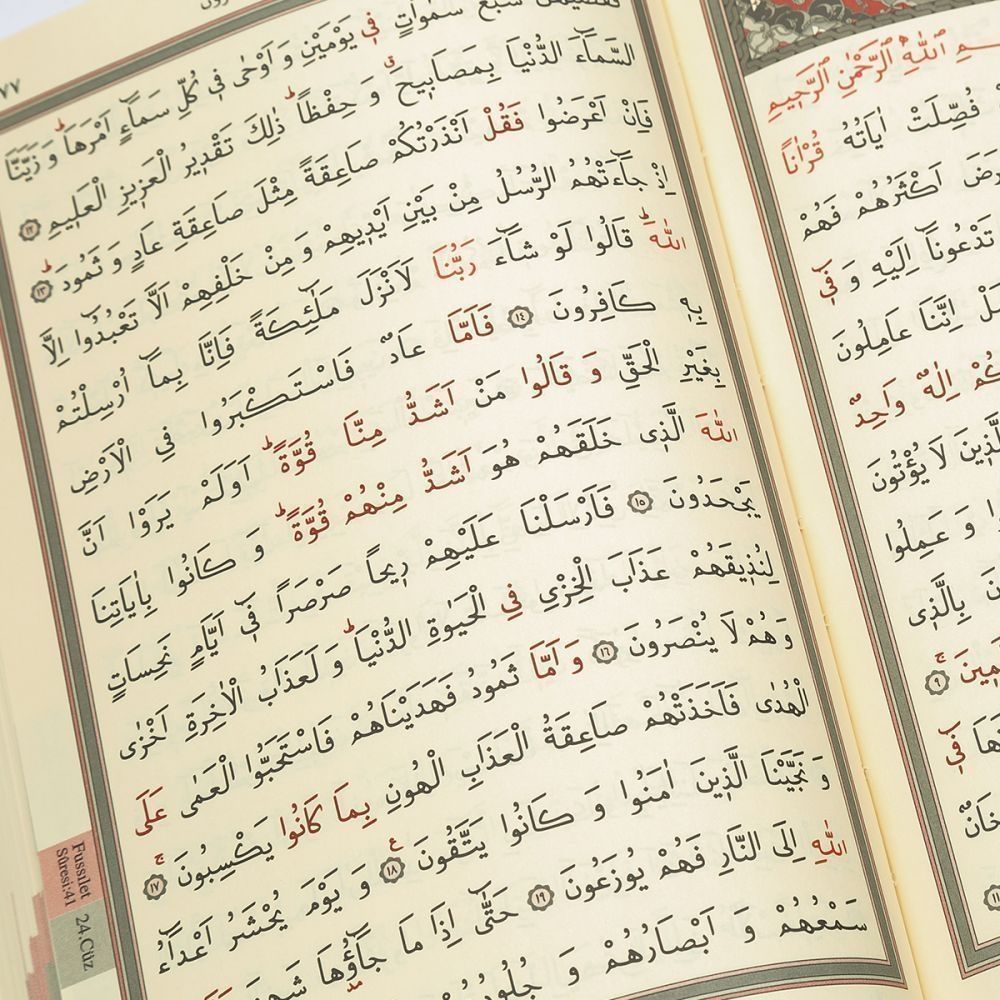 اللّٰهِ الرَّحْمٰنِ الرَّحٖيمِ
فُصِّلَتْ اٰيَاتُهُ قُرْاٰنًا
اَكْثَرُهُمْ فَهُمْ
تَدْعُونَٓا اِلَيْهِ وَ فٖٓي
اِنَّنَا عَامِلُونَ
اِلٰهٌ وَاحِدٌ
لَا يُؤْتُونَ
وَ عَمِلُوا
بِالَّذٖي
٩
فٖي
سَبْعَ سَمٰوَاتٍ فٖي يَوْمَيْنِ وَ اَوْحٰى فٖي كُلِّ سَمَٓاءٍ اَمْرَهَا وَ زَيَّنَّا
السَّمَٓاءَ الدُّنْيَا بِمَصَابٖيحَ وَ حِفْظًا ذٰلِكَ تَقْدٖيرُ الْعَزٖيزِ الْعَلٖيمِ ١٢
فَاِنْ اَعْرَضُوا فَقُلْ اَنْذَرْتُكُمْ صَاعِقَةً مِثْلَ صَاعِقَةِ عَادٍ وَ ثَمُودَ ١٣
اِذْ جَٓاءَتْهُمُ الرُّسُلُ مِنْ بَيْنِ اَيْدٖيهِمْ وَ مِنْ خَلْفِهِمْ اَلَّا تَعْبُدُٓوا اِلَّا
اللّٰهَ قَالُوا لَوْ شَٓاءَ رَبُّنَا لَاَنْزَلَ مَلٰٓئِكَةً فَاِنَّا بِمَٓا اُرْسِلْتُمْ
بِهٖ كَافِرُونَ ١٤ فَاَمَّا عَادٌ فَاسْتَكْبَرُوا فِي الْاَرْضِ
بِغَيْرِ الْحَقِّ وَ قَالُوا مَنْ اَشَدُّ مِنَّا قُوَّةً اَوَلَمْ يَرَوْا اَنَّ
اللّٰهَ الَّذٖي خَلَقَهُمْ هُوَ اَشَدُّ مِنْهُمْ قُوَّةً وَ كَانُوا بِاٰيَاتِنَا
يَجْحَدُونَ ١٥ فَاَرْسَلْنَا عَلَيْهِمْ رٖيحًا صَرْصَرًا فٖٓي اَيَّامٍ نَحِسَاتٍ
لِنُذٖيقَهُمْ عَذَابَ الْخِزْيِ فِي الْحَيٰوةِ الدُّنْيَا وَ لَعَذَابُ الْاٰخِرَةِ اَخْزٰى
وَ هُمْ لَا يُنْصَرُونَ ١٦ وَ اَمَّا ثَمُودُ فَهَدَيْنَاهُمْ فَاسْتَحَبُّوا الْعَمٰى عَلَى
الْهُدٰى فَاَخَذَتْهُمْ صَاعِقَةُ الْعَذَابِ الْهُونِ بِمَا كَانُوا يَكْسِبُونَ ١٧
وَ نَجَّيْنَا الَّذٖينَ اٰمَنُوا وَ كَانُوا يَتَّقُونَ ١٨ وَ يَوْمَ يُحْشَرُ اَعْدَٓاءُ
اللّٰهِ اِلَى النَّارِ فَهُمْ يُوزَعُونَ ١٩ حَتّٰٓى اِذَا مَا جَٓاؤُ۫هَا
سَمْعُهُمْ وَ اَبْصَارُهُمْ وَ
Fussılet
Sûresi:41
24.Cüz